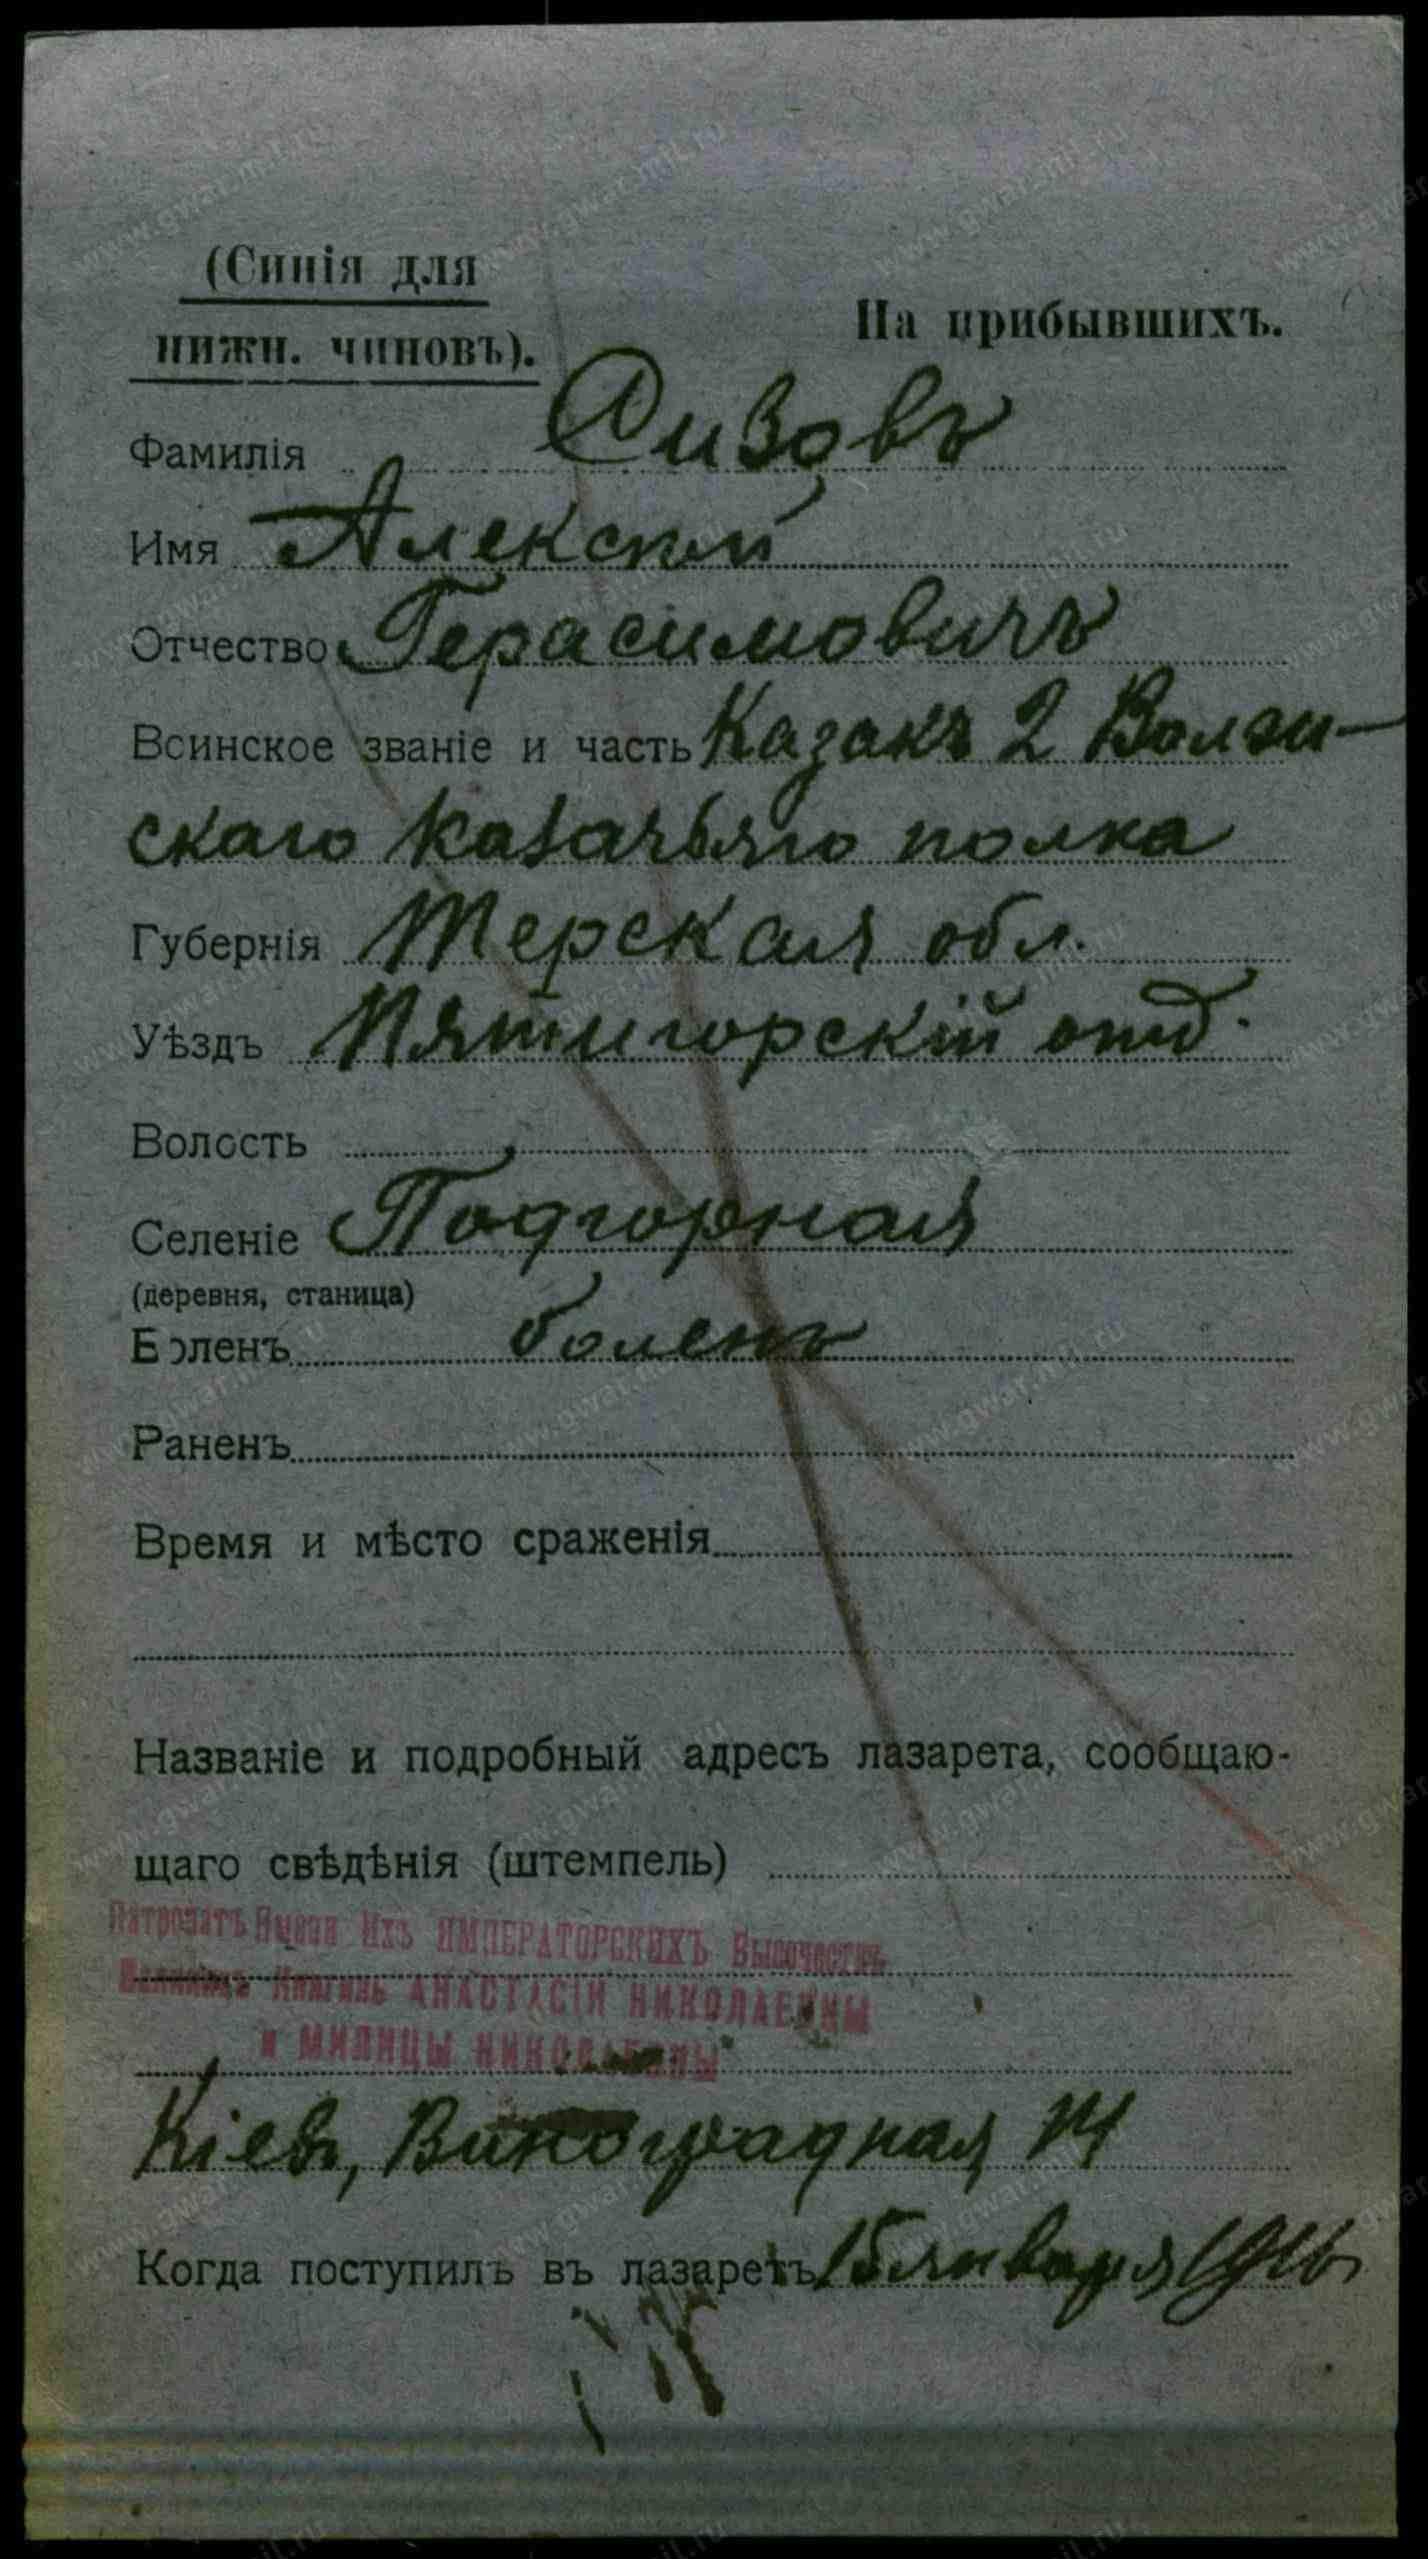 (Синія для
нижн. чиновъ).
На прибывшихъ.
Фамилія Сизовъ
Имя Алексѣй
Отчество Герасимовичъ
Воинское званіе и часть Казакъ 2 Волж-
скаго казачьяго полка
Губернія Терская обл.
Уѣздъ Пятигорскій отд.
Волость
Селеніе Подгорная
(деревня, станица)
Боленъ боленъ
Раненъ
Время и мѣсто сраженія
Названіе и подробный адресъ лазарета, сообщаю-
щаго свѣдѣнія (штемпель)
Патронатъ Имени Ихъ ИМПЕРАТОРСКИХЪ Высочествъ
Великихъ Княгинь АНАСТАСІИ НИКОЛАЕВНЫ
и МИЛИЦЫ НИКОЛАЕВНЫ
Кіевъ, Виноградная 14
Когда поступилъ въ лазаретъ 15 января 1916